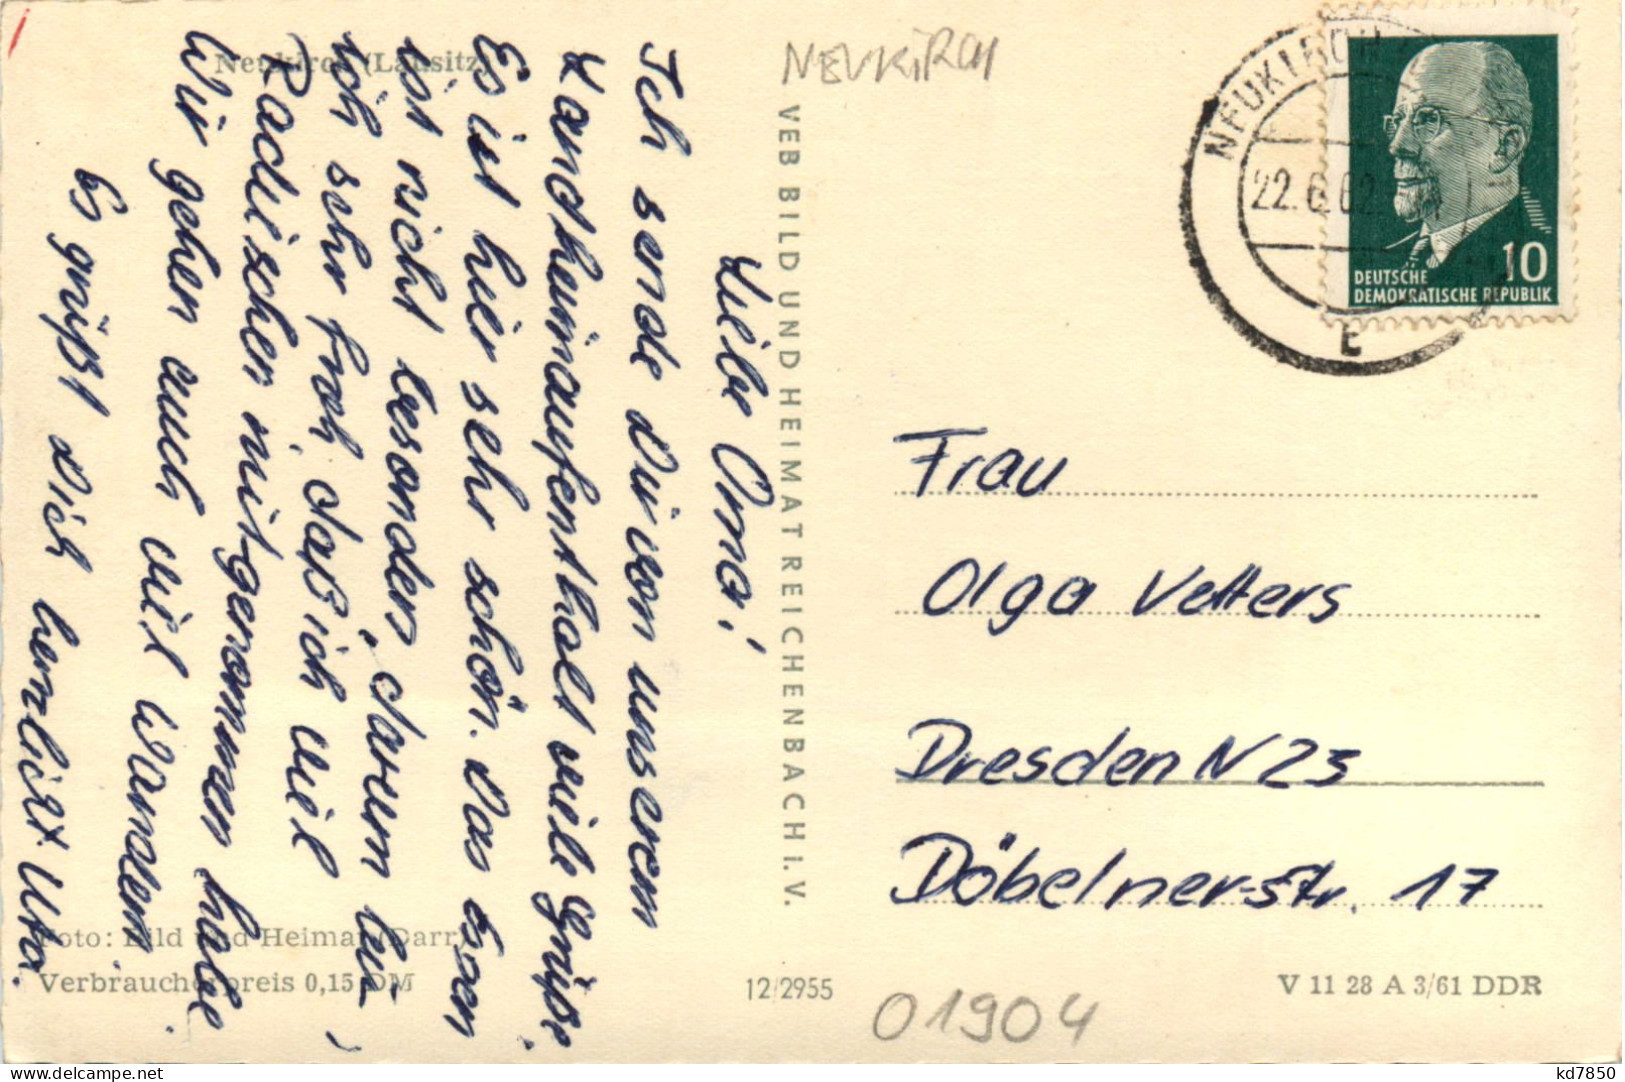 Neukirch (Lausitz)
Liebe Oma!
Ich sende Dir von unserem
Landheimaufenthalt viele Grüße.
Es ist hier sehr schön. Das Essen
ist nicht besonders, darum bin
ich sehr froh, daß ich viel
Radieschen mitgenommen habe.
Wir gehen auch viel wandern.
Es grüßt Dich herzlichst Uta.
Foto: Bild und Heimat (Darr)
Verbraucherpreis 0,15 DM
VEB BILD UND HEIMAT REICHENBACH I. V.
12/2955
NEUKIRCH
NEUKIRCH
22.6.62
E
10
DEUTSCHE
DEMOKRATISCHE REPUBLIK
Frau
Olga Vetters
Dresden N 23
Döbelner-Str. 17
V 11 28 A 3/61 DDR
01904
kd7850